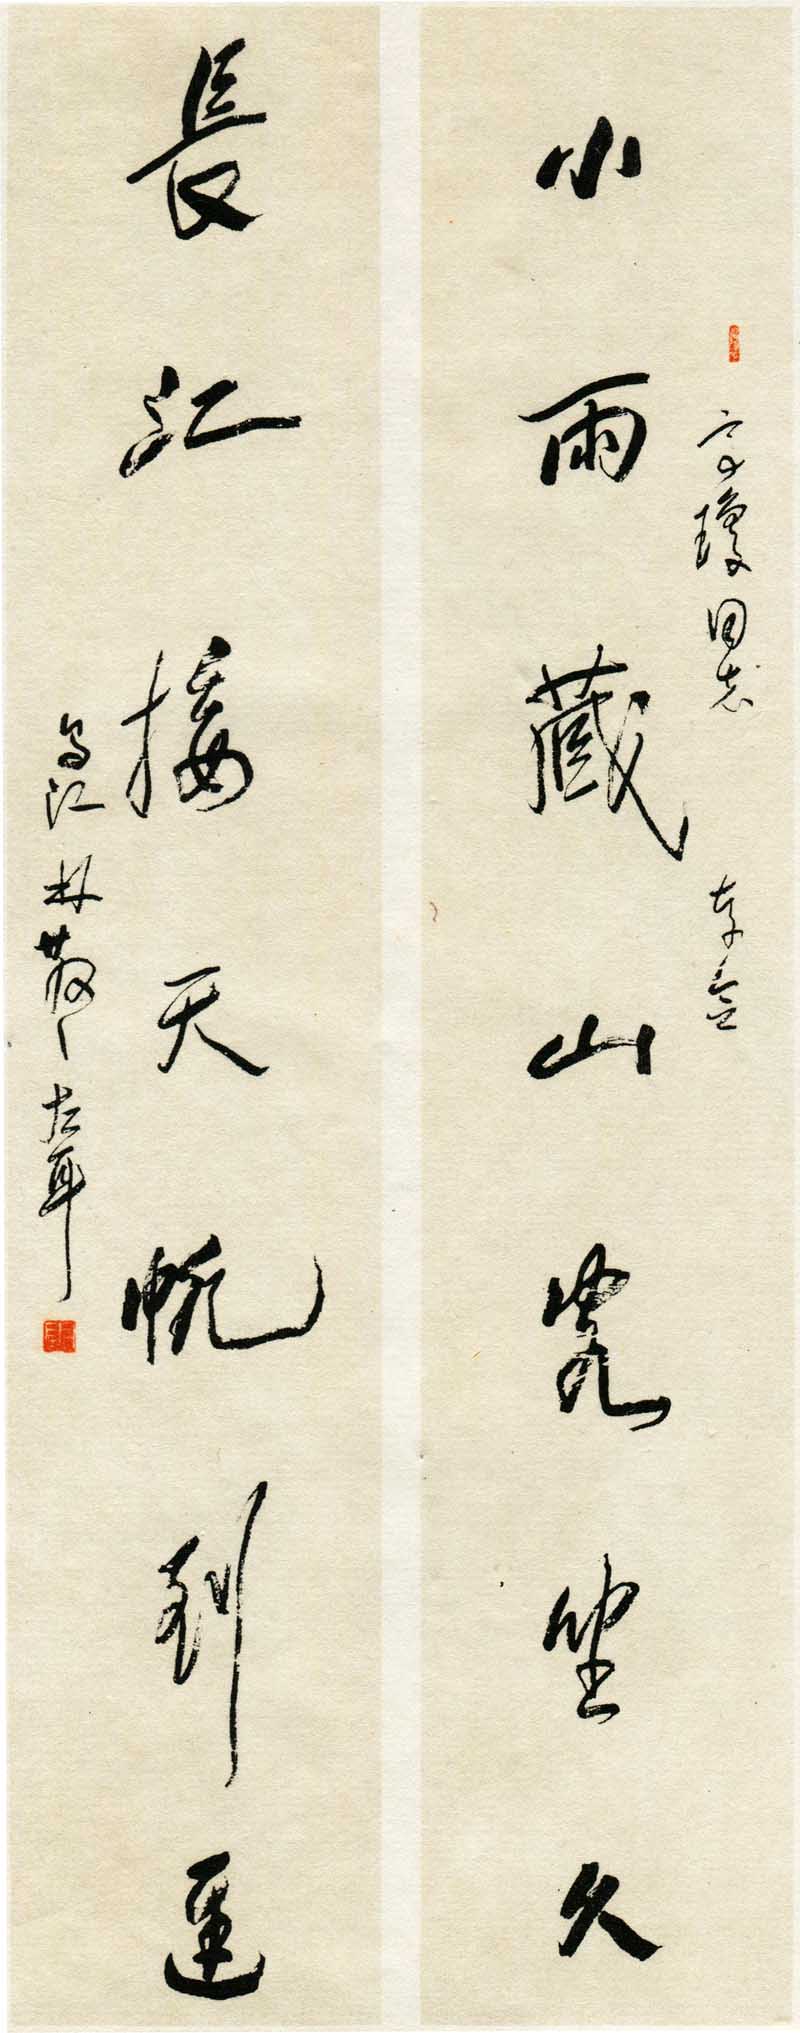 小雨藏山覺坐久
瓊同志 存念
長江接天帆到遲
烏江林散之左耳